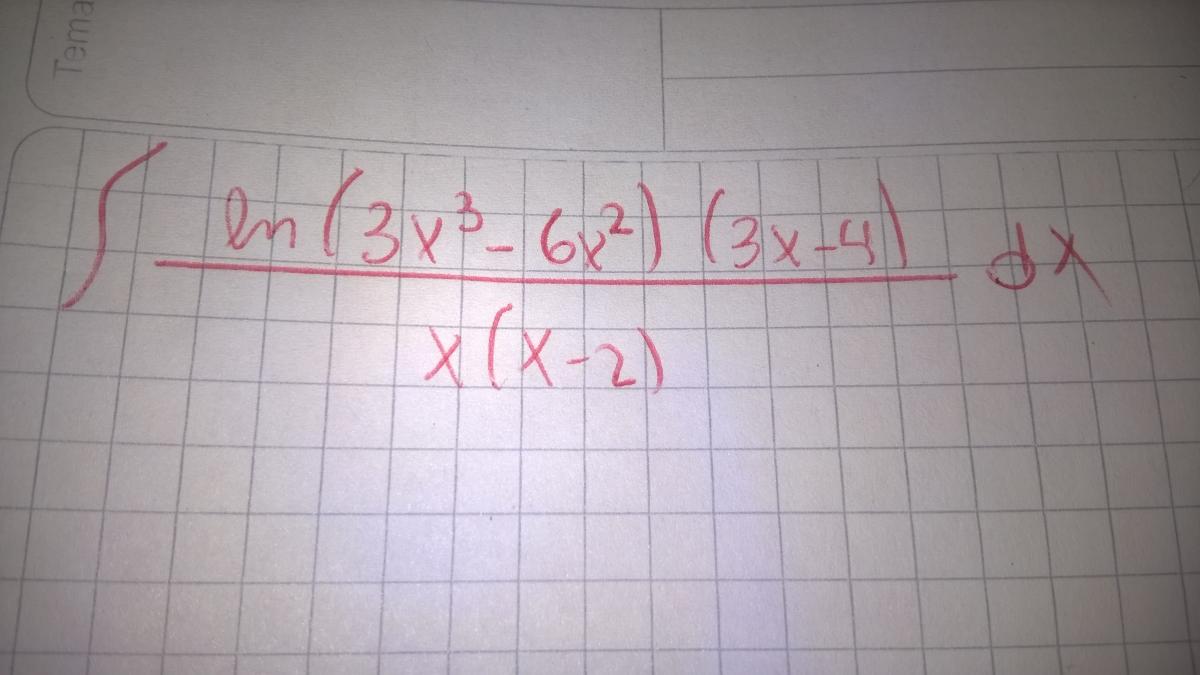 Tema
∫ ln(3x³ - 6x²) (3x-4) / x(x-2) dx